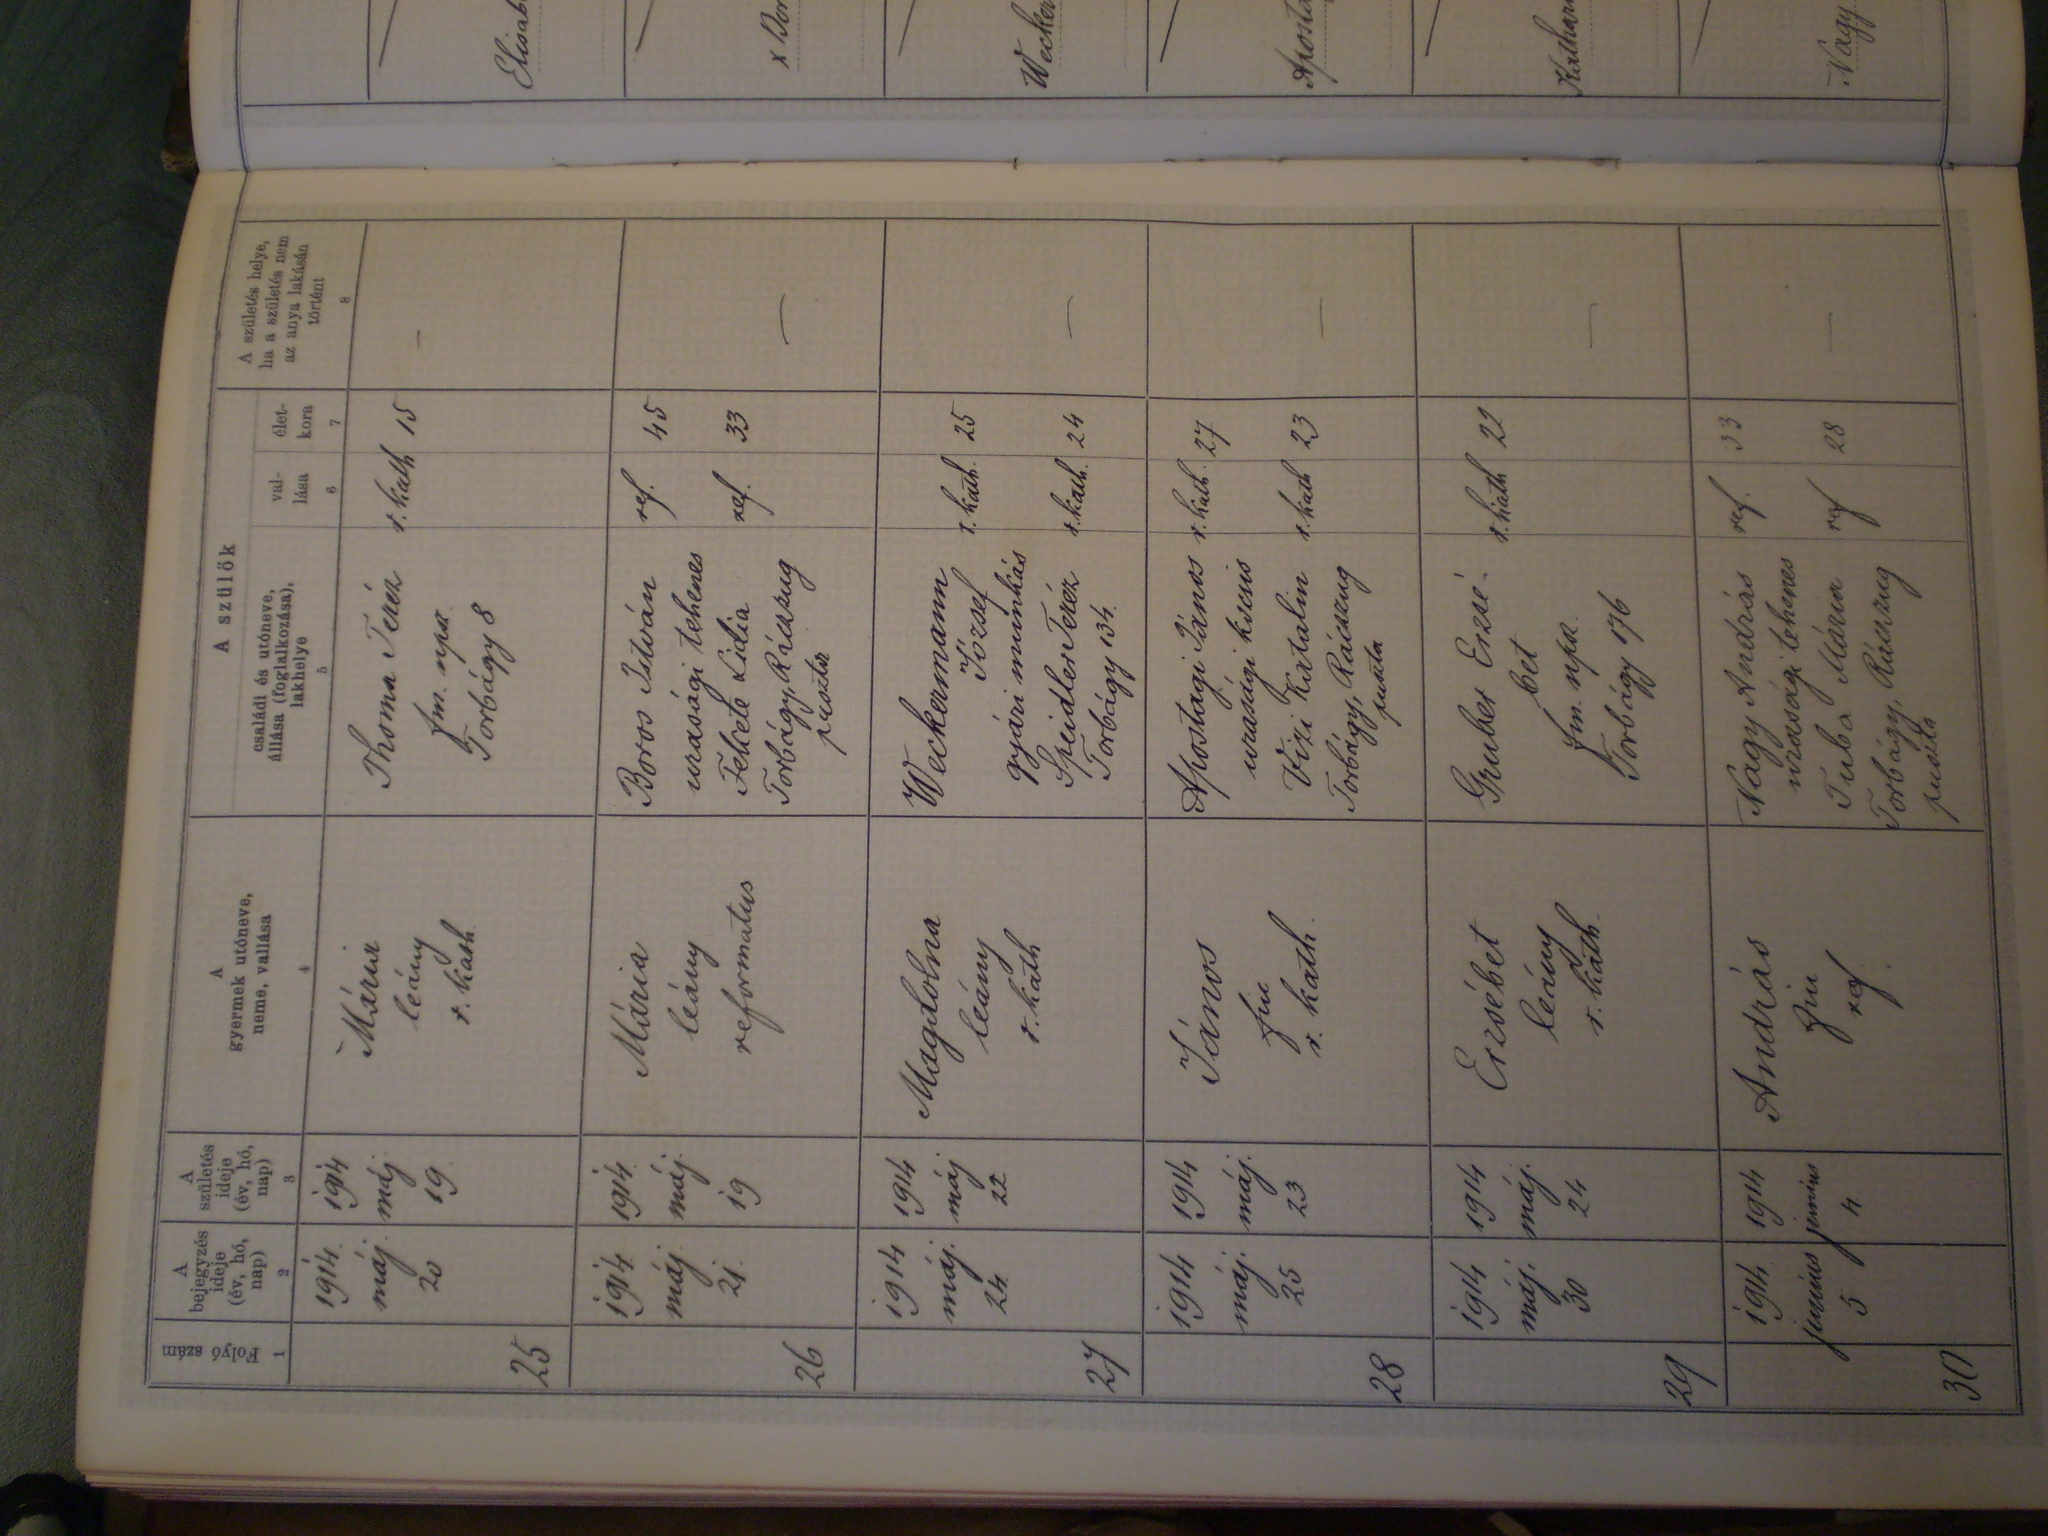 A szülők
Folyó szám
A bejegyzés ideje (év, hó, nap)
A születés ideje (év, hó, nap)
A gyermek utóneve, neme, vallása
családi és utóneve, állása (foglalkozása), lakhelye
val-
lása
élet-
kora
A születés helye, ha a születés nem az anya lakásán történt
1
2
3
4
5
6
7
8
25
1914.
máj.
20
1914
máj
19.
Mária
leány
r. kath.
Thoma Teréz
fm. npsz.
Torbágy 8
r. kath
15
—
26
1914.
máj.
21.
1914.
máj.
19
Mária
leány
reformatus
Boros István
urasági tehenes
Fekete Lidia
Torbágy, Rácszug
puszta
ref.
45
ref.
33
—
27
1914
máj.
24.
1914
máj
22
Magdolna
leány
r. kath
Weckermann
József
gyári munkás
Speidler Teréz
Torbágy 134.
r. kath.
25
r. kath.
24
—
28
1914
máj.
25
1914
máj.
23
János
fiu
r. kath.
Apostagi János
urasági kocsis
Vizi Katalin
Torbágy, Rácszug
puszta
r. kath.
27
r. kath
23
—
29
1914
máj.
30
1914
máj.
24
Erzsébet
leány
r. kath.
Gruber Erzsé-
bet
fm. npsz.
Torbágy 176
r. kath
22
—
30
1914.
junius
5
1914
junius
4
András
fiu
ref.
Nagy András
urasági tehenes
Tuba Mária
Torbágy, Rácszug
puszta
ref.
33
ref
28
—